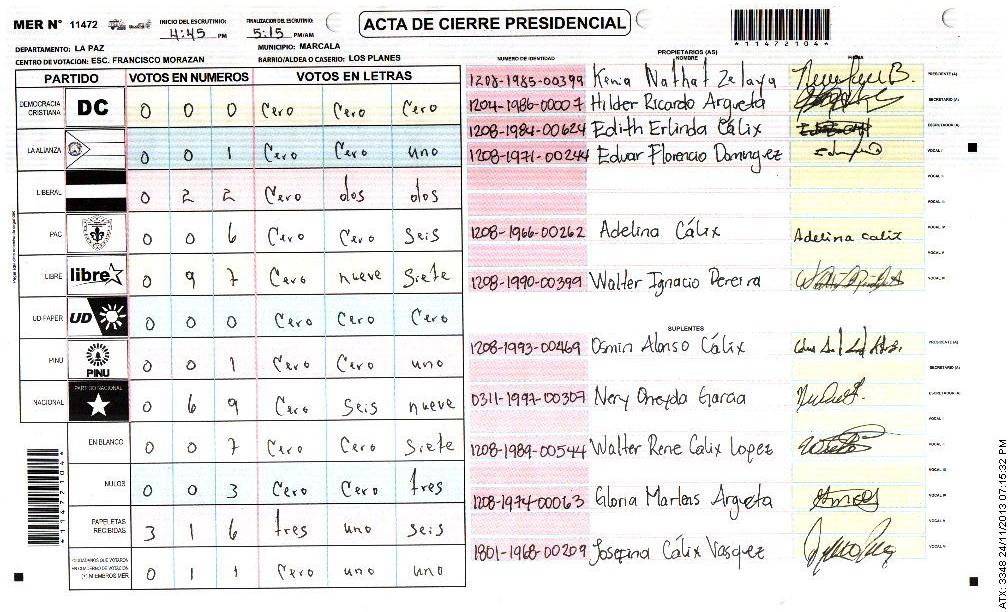 MER N° 11472
INICIO DEL ESCRUTINIO: 4:45 PM
FINALIZACION DEL ESCRUTINIO: 5:15 PM/AM
ACTA DE CIERRE PRESIDENCIAL
*11472104*
DEPARTAMENTO: LA PAZ
MUNICIPIO: MARCALA
CENTRO DE VOTACION: ESC. FRANCISCO MORAZAN
BARRIO/ALDEA O CASERIO: LOS PLANES
PARTIDO VOTOS EN NUMEROS VOTOS EN LETRAS
DEMOCRACIA CRISTIANA DC 0 0 0 Cero Cero Cero
LA ALIANZA 0 0 1 Cero Cero uno
LIBERAL 0 2 2 Cero dos dos
PAC 0 0 6 Cero Cero Seis
LIBRE libre 0 9 7 Cero nueve Siete
UD-FAPER UD 0 0 0 Cero Cero Cero
PINU PINU 0 0 1 Cero Cero uno
NACIONAL PARTIDO NACIONAL 0 6 9 Cero Seis nueve
EN BLANCO 0 0 7 Cero Cero Siete
NULOS 0 0 3 Cero Cero tres
PAPELETAS RECIBIDAS 3 1 6 tres uno seis
CIUDADANOS QUE VOTARON EN CUADERNO DE VOTACION (+) MIEMBROS MER 0 1 1 Cero uno uno
*11472104*
PROPIETARIOS (AS)
NUMERO DE IDENTIDAD NOMBRE FIRMA
1208-1985-00399 Kenia Nathat Zelaya PRESIDENTE (A)
1204-1986-00007 Hilder Ricardo Argueta SECRETARIO (A)
1208-1984-00624 Edith Erlinda Cálix ESCRUTADOR (A)
1208-1971-00244 Edvar Florencio Dominguez VOCAL I
VOCAL II
VOCAL III
1208-1966-00262 Adelina Cálix Adelina calix VOCAL IV
VOCAL V
1208-1990-00399 Walter Ignacio Pereira VOCAL VI
SUPLENTES
1208-1993-00469 Osmin Alonso Cálix PRESIDENTE (A)
SECRETARIO (A)
0311-1997-00307 Nery Oneyda Garcia ESCRUTADOR (A)
VOCAL I
1208-1989-00544 Walter Rene Calix Lopez VOCAL II
VOCAL III
1208-1974-00063 Gloria Marleas Argueta VOCAL IV
VOCAL V
1801-1968-00209 Josefina Cálix Vasquez VOCAL VI
ATX: 3348 24/11/2013 07:15:32 PM